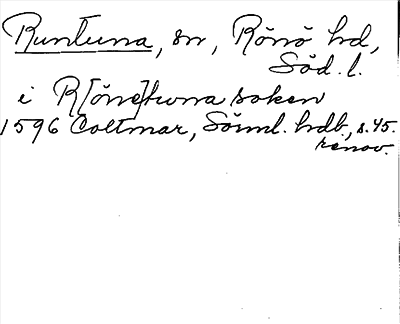 Runtuna, sn, Rönö hd,
Söd. l.
i R[öne]tuna soken
1596 Coltmar, Sörml. hdb, s. 45.
renov.